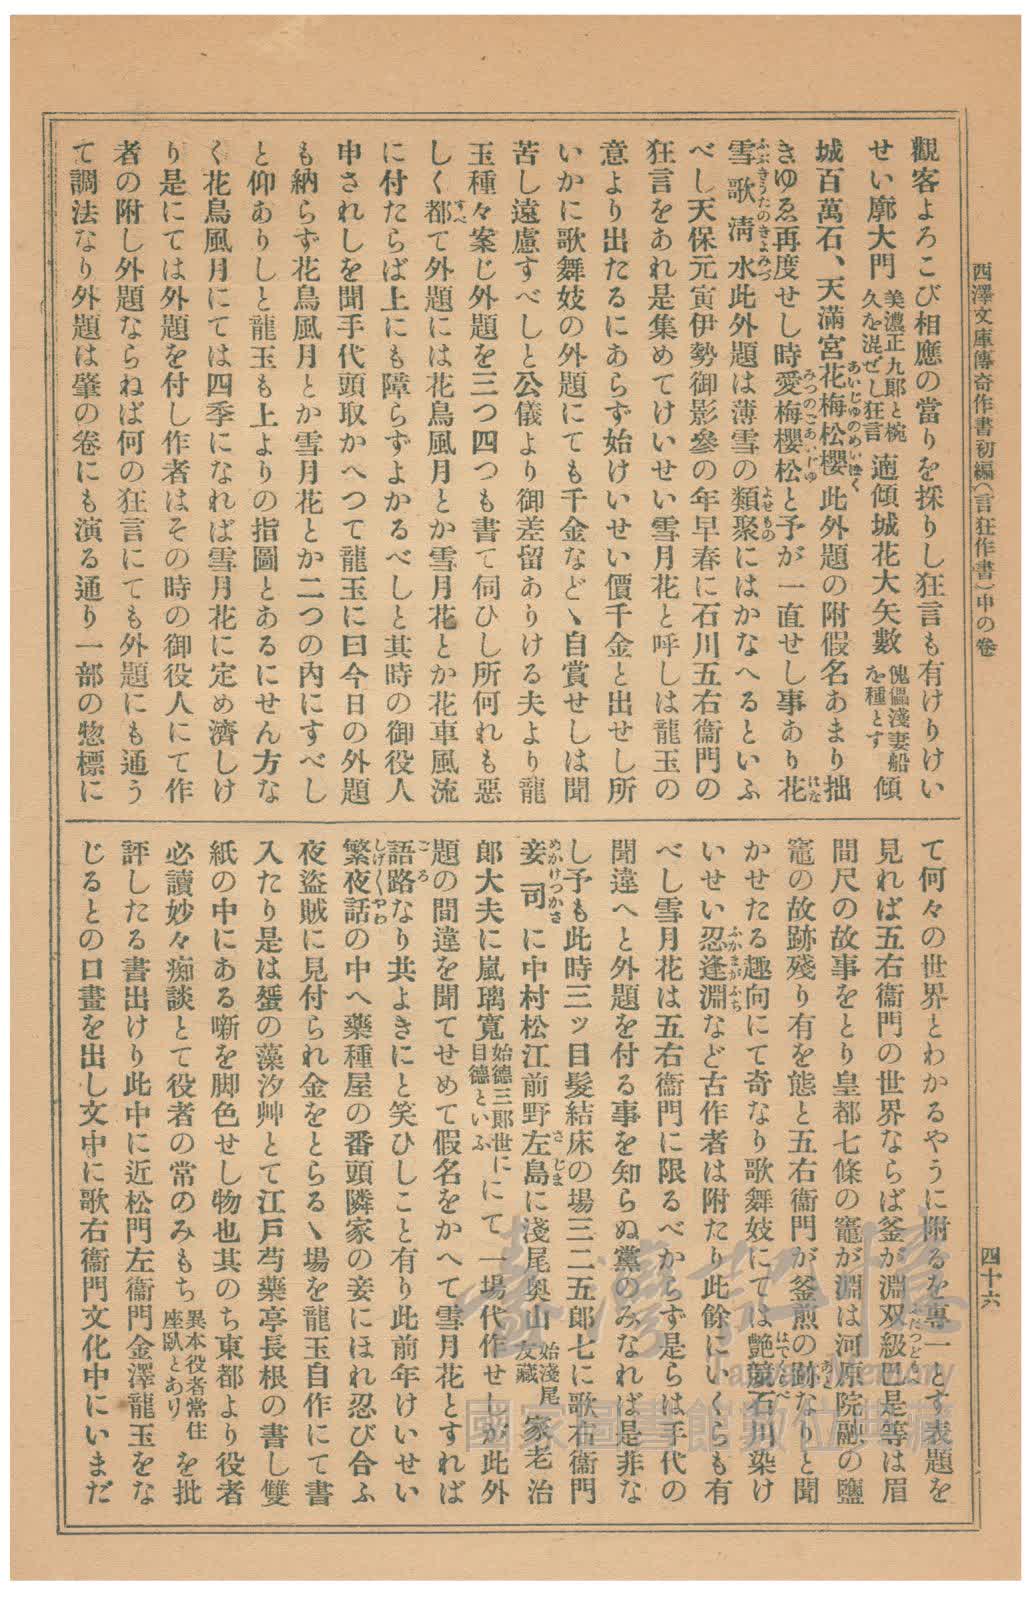 西澤文庫傳奇作書初編(言狂作書)中の卷
四十六
觀客よろこび相應の當りを採りし狂言も有けりけい
せい廓大門美濃正九郎と椀久を混ぜし狂言 適傾城花大矢數傀儡淺妻船を種とす 傾
城百萬石、天滿宮花梅松櫻此外題の附假名あまり拙
きゆゑ再度せし時愛梅櫻松と予が一直せし事あり花
雪歌淸水此外題は薄雪の類聚にはかなへるといふ
べし天保元寅伊勢御影參の年早春に石川五右衞門の
狂言をあれ是集めてけいせい雪月花と呼しは龍玉の
意より出たるにあらず始けいせい價千金と出せし所
いかに歌舞妓の外題にても千金などゝ自賞せしは聞
苦し遠慮すべしと公儀より御差留ありける夫より龍
玉種々案じ外題を三つ四つも書て伺ひし所何れも惡
しく都て外題には花鳥風月とか雪月花とか花車風流
に付たらば上にも障らずよかるべしと其時の御役人
申されしを聞手代頭取かへつて龍玉に曰今日の外題
も納らず花鳥風月とか雪月花とか二つの内にすべし
と仰ありしと龍玉も上よりの指圖とあるにせん方な
く花鳥風月にては四季になれば雪月花に定め濟しけ
り是にては外題を付し作者はその時の御役人にて作
者の附し外題ならねば何の狂言にても外題にも通う
て調法なり外題は肇の卷にも演る通り一部の惣標に
て何々の世界とわかるやうに附るを專一とす表題を
見れば五右衞門の世界ならば釜が淵双級巴是等は眉
間尺の故事をとり皇都七條の竈が淵は河原院融の鹽
竈の故跡殘り有を態と五右衞門が釜煎の跡なりと聞
かせたる趣向にて奇なり歌舞妓にては艶競石川染け
いせい忍逢淵など古作者は附たり此餘にいくらも有
べし雪月花は五右衞門に限るべからず是らは手代の
聞違へと外題を付る事を知らぬ黨のみなれば是非な
し予も此時三ッ目髮結床の場三二五郎七に歌右衞門
妾司に中村松江前野左島に淺尾奥山始淺尾友藏 家老治
郎大夫に嵐璃寛始德三郎世に目德といふ にて一場代作せしが此外
題の間違を聞てせめて假名をかへて雪月花とすれば
語路なり共よきにと笑ひしこと有り此前年けいせい
繁夜話の中へ藥種屋の番頭隣家の妾にほれ忍び合ふ
夜盜賊に見付られ金をとらるゝ場を龍玉自作にて書
入たり是は蜑の藻汐艸とて江戸芍藥亭長根の書し雙
紙の中にある噺を脚色せし物也其のち東都より役者
必讀妙々痴談とて役者の常のみもち異本役者常住座臥とあり を批
評したる書出けり此中に近松門左衞門金澤龍玉をな
じるとの口畫を出し文中に歌右衞門文化中にいまだ
臺灣記憶
Taiwan Memory
國家圖書館數位典藏